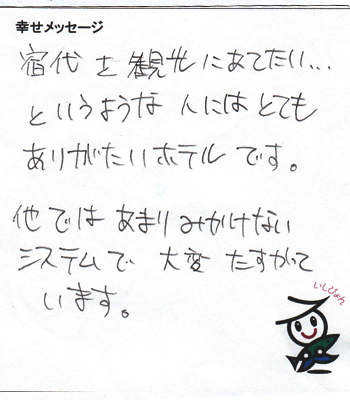 幸せメッセージ
宿代を観光にあてたい...
というような人にはとても
ありがたいホテルです。
他ではあまりみかけない
システムで 大変 たすかって
います。
いしぴょん